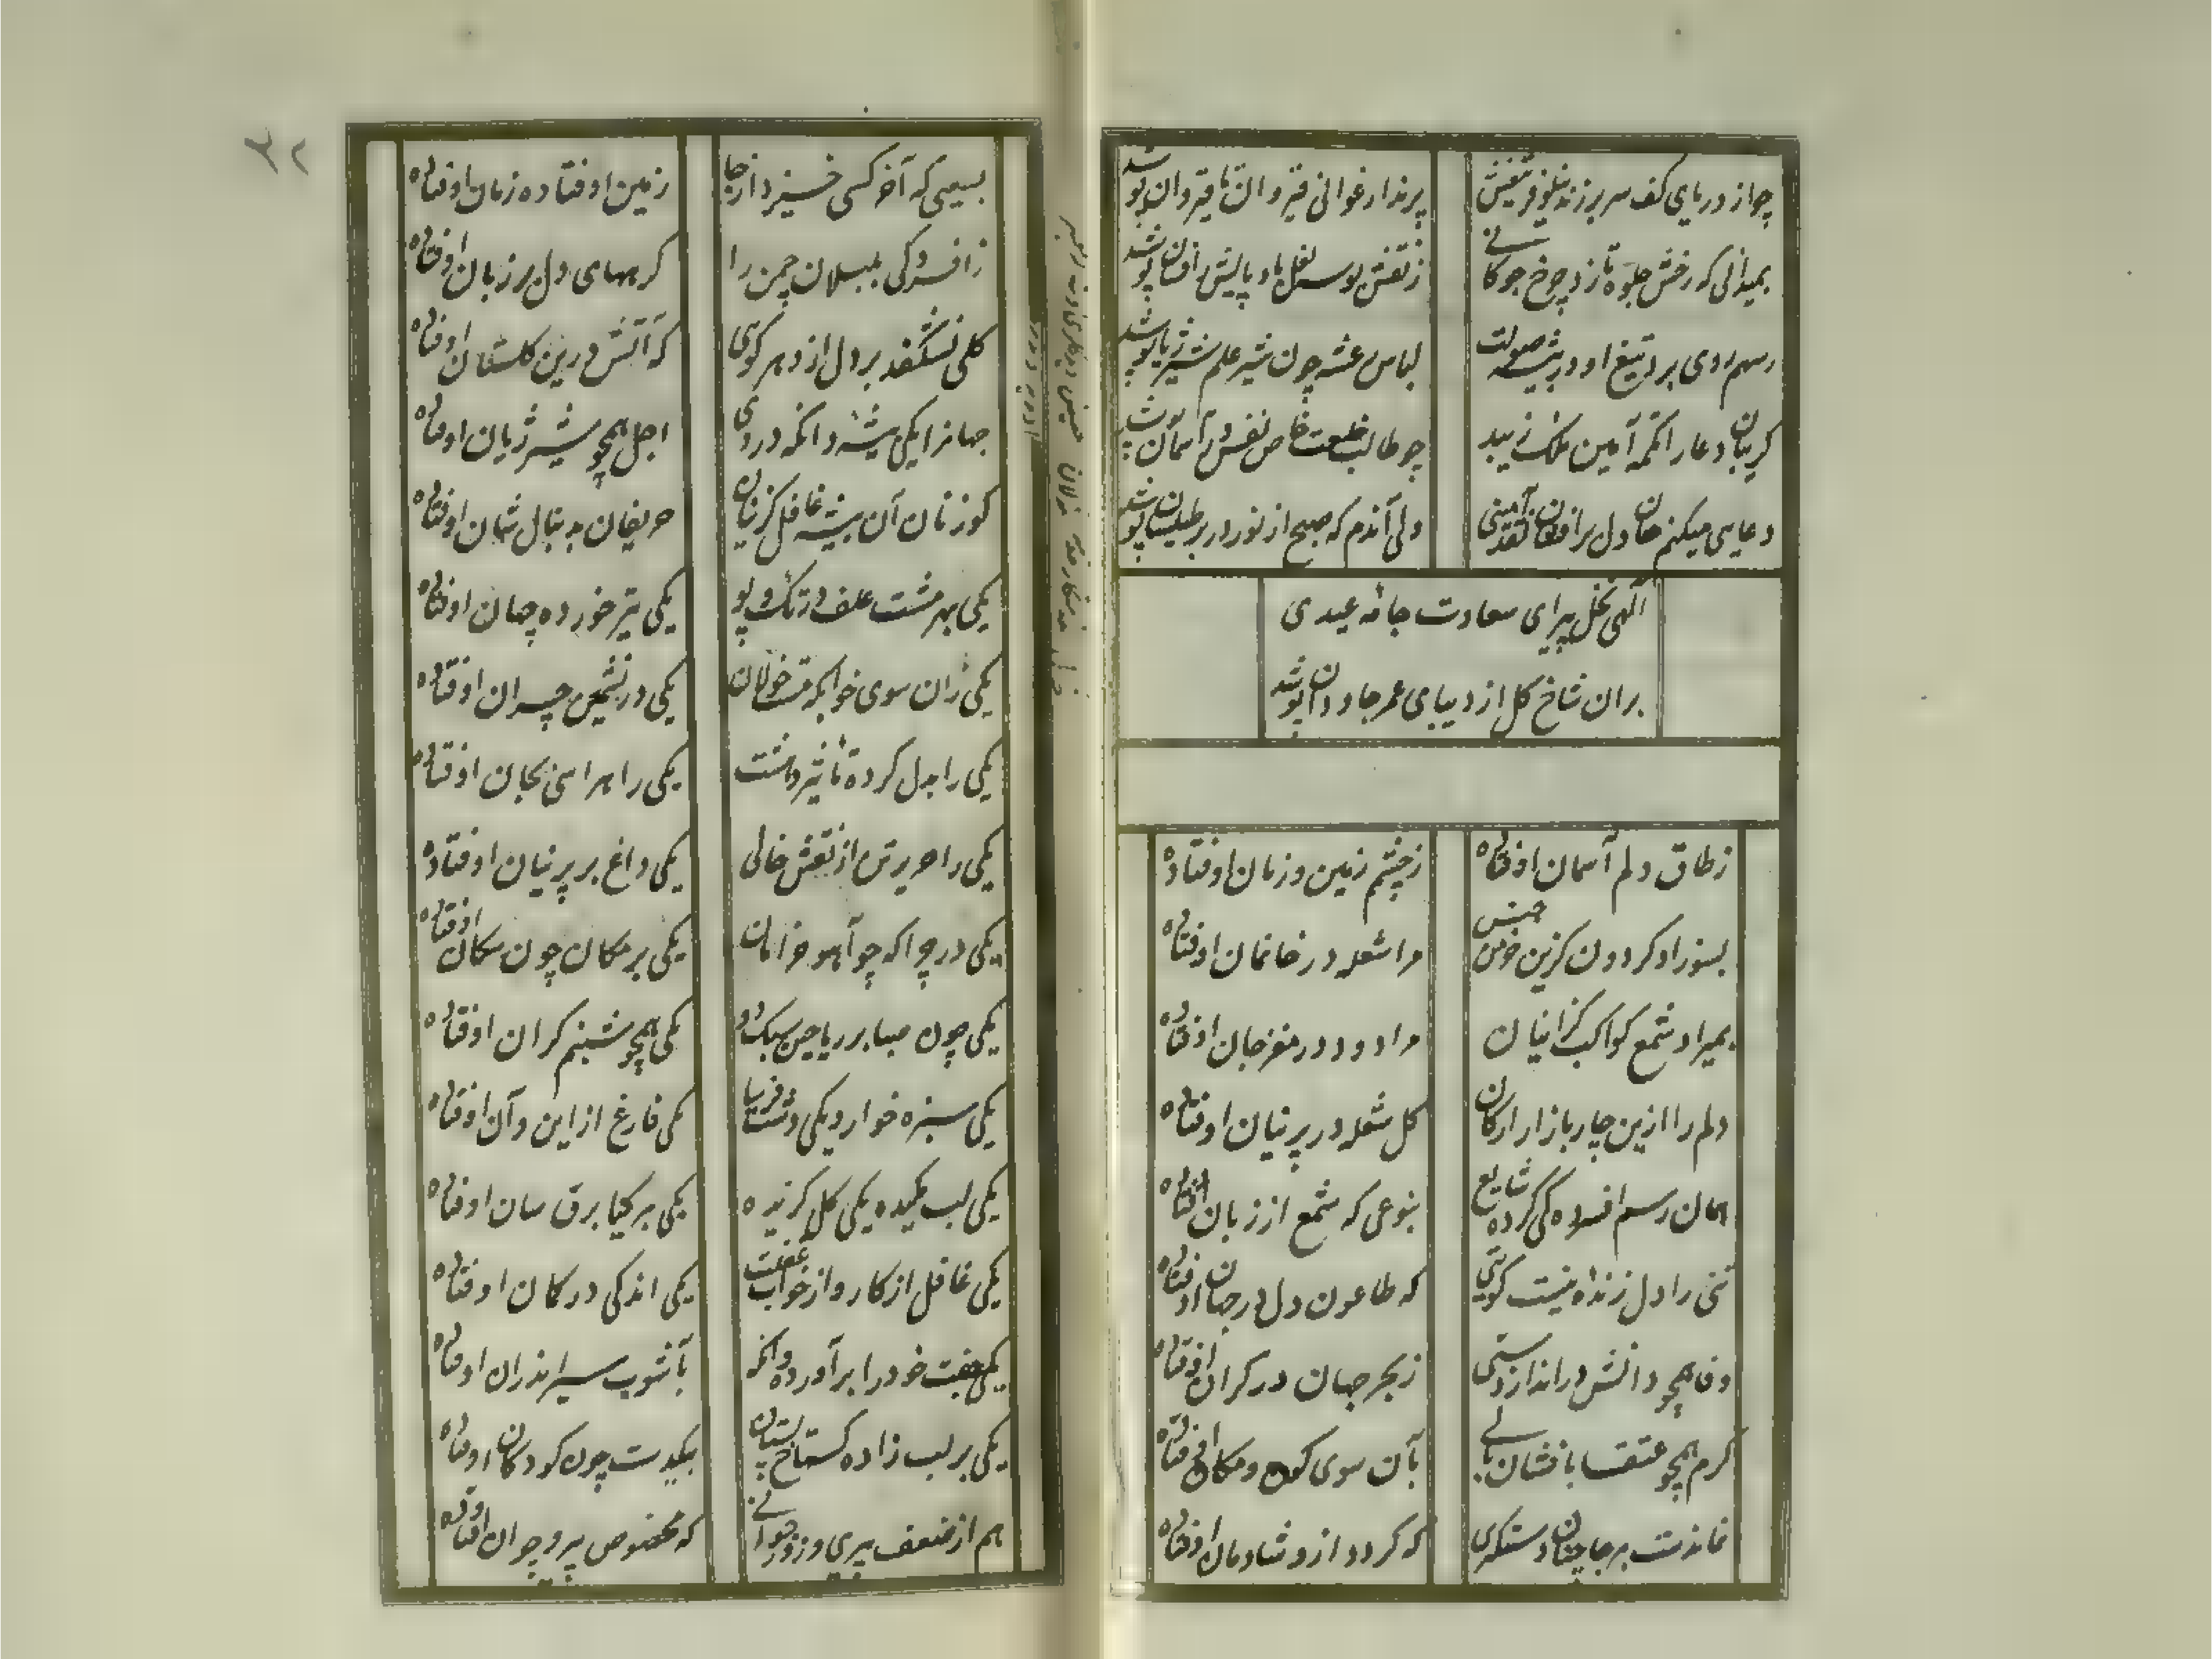 چو از دریای کف سر برزند نیلوفر تیغش
پرند ارغوانی قیروان تا قیروان پوشد
بمیدانی که رخش جلوه تازد چرخ جوکانی
ز نقش بوسه نعل بادپایش افسان پوشد
رسم روی برد تیغ او در بیشه صولت
لباس عشه چون شیر علم شیر ژیان پوشد
کریبان دعا را تکمه آمین ملک زیبد
چو طالب خلعت خاص نفس در آسمان پوشد
دعایی میکنم خان دل برافقان نقد آمینی
ولی آندم که صبح از نور در بر طیلسان پوشد
الهی نخل پیرای سعادت جامه عیدی
بران شاخ کل از دیبای عمر جاودان پوشد
ز طاق دلم آسمان اوفتاده
ز چشم زمین و زمان اوفتاده
بسوزاد کردون کزین خرمن
مرا شعله در خانمان اوفتاده
بمیراد شمع کواکب کزانیان
مرا دود در مغز جان اوفتاده
دلم را ازین چار بازار ارکان
کل شعله در پرنیان اوفتاده
همان رسم افسرده کی کرده شایع
بنوعی که شمع از زبان اوفتاده
تنی را دل زنده نیست کویی
که طاعون دل در جهان اوفتاده
وفا همچو دانش در انداز دستی
ز بحر جهان در کران اوفتاده
کرم همچو عنقا با فشان بالی
بآن سوی کون و مکان اوفتاده
نماندست بر جا چنان دستکهی
که کردد ازو شادمان اوفتاده
بسیمی که آخر کسی خیزد از جا
زمین اوفتاده زمان اوفتاده
ز افسردکی بلبلان چمن را
کرههای دل بر زبان اوفتاده
کلی نشکفد بر دل از دهر کویی
که آتش درین کلستان اوفتاده
جهانرا یکی بیشه دانکه در وی
اجل همچو شیر ژیان اوفتاده
کوزنان آن بیشه غافل کزینان
حریفان بدنبال شان اوفتاده
یکی بهر مشت علف در تک و پو
یکی تیر خورده چهان اوفتاده
یکی زان سوی خوابکه مست خولان
یکی در نشیمن چران اوفتاده
یکی را بدل کرده تاثیر دهشت
یکی را هراسی بجان اوفتاده
یکی را حریر تن از نقش خالی
یکی داغ بر پرنیان اوفتاده
یکی در چراکه چو آهو خرامان
یکی بر مکان چون سکان اوفتاده
یکی چون صبا بر ریاحین سبک رو
یکی همچو شبنم کران اوفتاده
یکی سبزه خوار و یکی دشت فرسا
یکی فارغ از این و آن اوفتاده
یکی لب مکیده یکی کل کزیده
یکی بر کیا برق سان اوفتاده
یکی غافل از کار و از خواب غفلت
یکی اندکی در کمان اوفتاده
یکی جفت خود را برآورده وانکه
بآشوب سیر اندران اوفتاده
یکی بر لب زاده کستاخ پستان
بیکدست چون کودکان اوفتاده
هم از ضعف پیری و زور جوانی
که مخصوص پیر و جوان اوفتاده